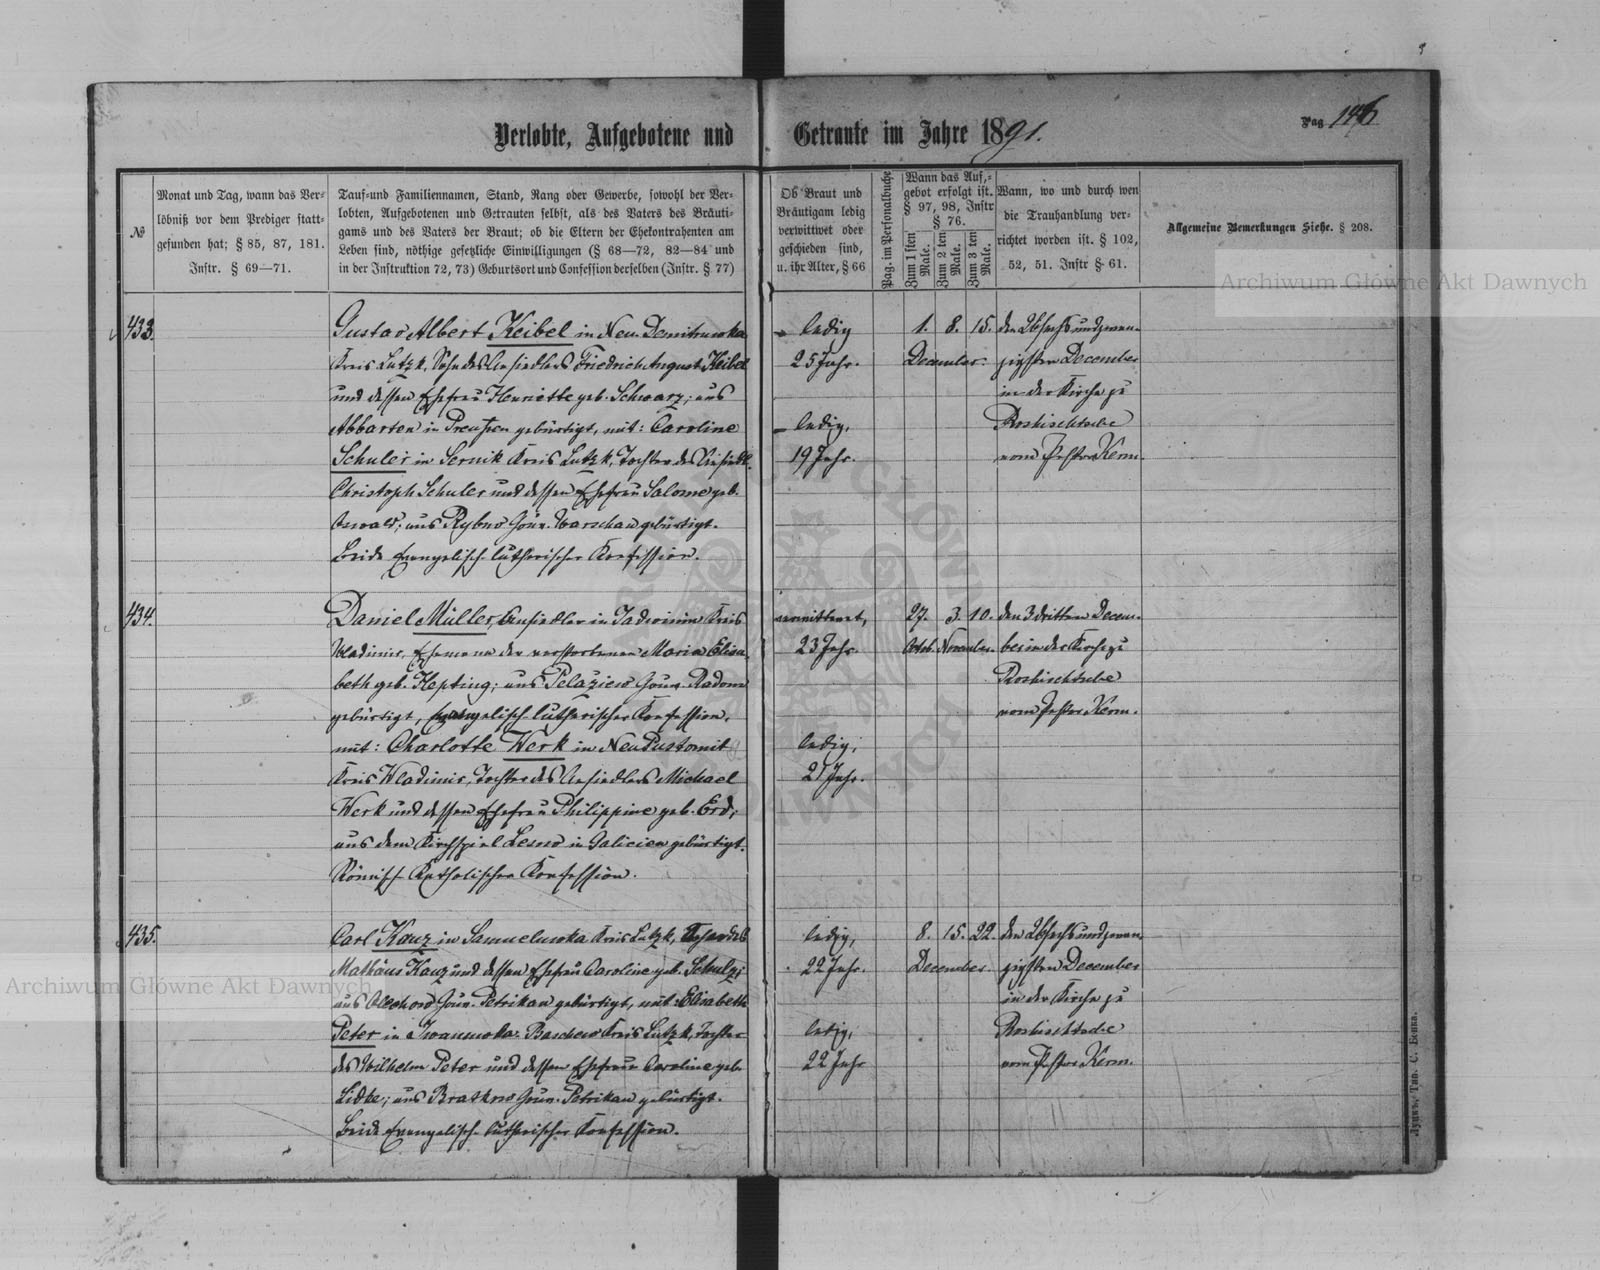 Verlobte, Aufgebotene und Getraute im Jahre 1891.
Pag 146
№
Monat und Tag, wann das Ver-
löbniß vor dem Prediger statt-
gefunden hat; § 85, 87, 181.
Instr. § 69—71.
Tauf-und Familiennamen, Stand, Rang oder Gewerbe, sowohl der Ver-
lobten, Aufgebotenen und Getrauten selbst, als des Vaters des Bräuti-
gams und des Vaters der Braut; ob die Eltern der Ehekontrahenten am
Leben sind, nöthige gesetzliche Einwilligungen (§ 68—72, 82—84 und
in der Instruktion 72, 73) Geburtsort und Confession derselben (Instr. § 77)
Ob Braut und
Bräutigam ledig
verwittwet oder
geschieden sind,
u. ihr Alter, § 66
Pag. im Personalbuche
Wann das Auf-
gebot erfolgt ist.
§ 97, 98, Instr
§ 76.
Zum 1 sten Male.
Zum 2 ten Male.
Zum 3 ten Male.
Wann, wo und durch wen
die Trauhandlung ver-
richtet worden ist. § 102,
52, 51. Instr § 61.
Allgemeine Bemerkungen Siehe. § 208.
433.
Gustav Albert Keibel in Neu Demitrowka
Kreis Lutzk, Sohn des Ansiedlers Friedrich August Keibel
und dessen Ehefrau Henriette geb. Schwarz; aus
Abbarten in Preußen gebürtigt, mit: Caroline
Schuler in Sernik Kreis Lutzk, Tochter des Ansiedl.
Christoph Schuler und dessen Ehefrau Salome geb.
Oswald; aus Rybno Gouv. Warschau gebürtigt.
Beide Evangelisch-lutherischer Konfession.
ledig
25 Jahr.
ledig,
19 Jahr.
1. 8. 15.
December.
den 26 sechsundzwan-
zigsten December
in der Kirche zu
Roshischtsche
vom Pastor Kerm.
434.
Daniel Müller, Ansiedler in Jadwinin Kreis
Wladimir, Ehemann der verstorbenen Maria Elisa-
beth geb. Hepting; aus Pelaziew Gouv. Radom
gebürtigt, Evangelisch-lutherischer Konfession,
mit: Charlotte Werk in Neu Pustomit
Kreis Wladimir, Tochter des Ansiedlers Michael
Werk und dessen Ehefrau Philippine geb. Erd;
aus dem Kirchspiel Lesno in Galicien gebürtigt.
Römisch-Katholischer Konfession.
verwittwet,
23 Jahr.
ledig,
21 Jahr.
27. 3. 10.
Octob. November.
den 3 dritten Decem-
ber in der Kirche zu
Roshischtsche
vom Pastor Kerm.
435.
Carl Kauz in Samuelowka Kreis Lutzk, Sohn des
Mathäus Kauz und dessen Ehefrau Caroline geb. Schulz;
aus Gouv. Petrikau gebürtigt, mit: Elisabeth
Peter in Iwanowka Kreis Lutzk, Tochter
des Wilhelm Peter und dessen Ehefrau Caroline geb.
Lidke; aus Gouv. Petrikau gebürtigt.
Beide Evangelisch-lutherischer Konfession.
ledig,
22 Jahr.
ledig,
22 Jahr
8. 15. 22.
December.
den 26 sechsundzwan-
zigsten December
in der Kirche zu
Roshischtsche
vom Pastor Kerm.
Archiwum Główne Akt Dawnych
Archiwum Główne Akt Dawnych